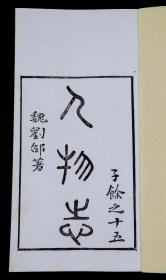 子餘之十五
人物志
魏劉邵著